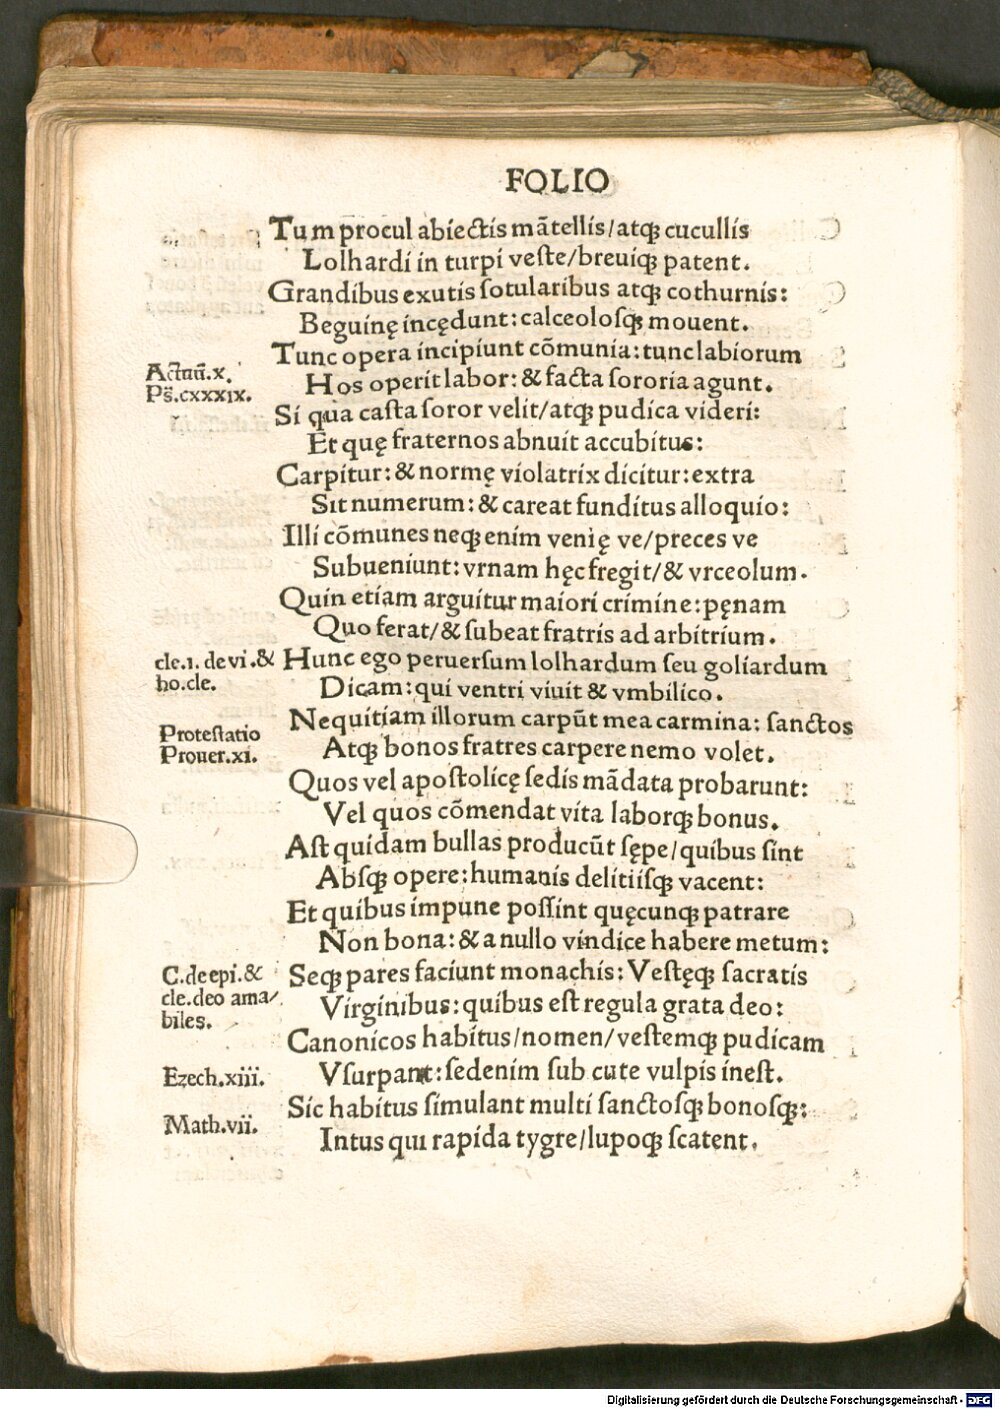 FOLIO
Tum procul abiectis mãtellis/atqꝫ cucullis
Lolhardi in turpi veſte/breuiqꝫ patent.
Grandibus exutis ſotularibus atqꝫ cothurnis:
Beguinę incędunt: calceoloſqꝫ mouent.
Tunc opera incipiunt cõmunia: tunc labiorum
Actuũ.x.
Hos operit labor: & facta ſororia agunt.
Ps̃.cxxxix.
Si qua caſta ſoror velit/atqꝫ pudica videri:
Et quę fraternos abnuit accubitus:
Carpitur: & normę violatrix dicitur: extra
Sit numerum: & careat funditus alloquio:
Illi cõmunes neqꝫ enim venię ve/preces ve
Subueniunt: vrnam hęc fregit/& vrceolum.
Quin etiam arguitur maiori crimine: pęnam
Quo ferat/& ſubeat fratris ad arbitrium.
cle.1. de vi.&
Hunc ego peruerſum lolhardum ſeu goliardum
ho.cle.
Dicam: qui ventri viuit & vmbilico.
Nequitiam illorum carpũt mea carmina: ſanctos
Proteſtatio
Atqꝫ bonos fratres carpere nemo volet.
Prouer.xi.
Quos vel apoſtolicę ſedis mãdata probarunt:
Vel quos cõmendat vita laborqꝫ bonus.
Aſt quidam bullas producũt ſępe/quibus ſint
Abſqꝫ opere: humanis delitiiſqꝫ vacent:
Et quibus impune poſſint quęcunqꝫ patrare
Non bona: & a nullo vindice habere metum:
C.de epi.&
Seqꝫ pares faciunt monachis: Veſtęqꝫ ſacratis
cle.deo ama/
Virginibus: quibus eſt regula grata deo:
biles.
Canonicos habitus/nomen/veſtemqꝫ pudicam
Ezech.xiii.
Vſurpant: ſed enim ſub cute vulpis ineſt.
Sic habitus ſimulant multi ſanctoſqꝫ bonoſqꝫ:
Math.vii.
Intus qui rapida tygre/lupoqꝫ ſcatent.
Digitalisierung gefördert durch die Deutsche Forschungsgemeinschaft - DFG